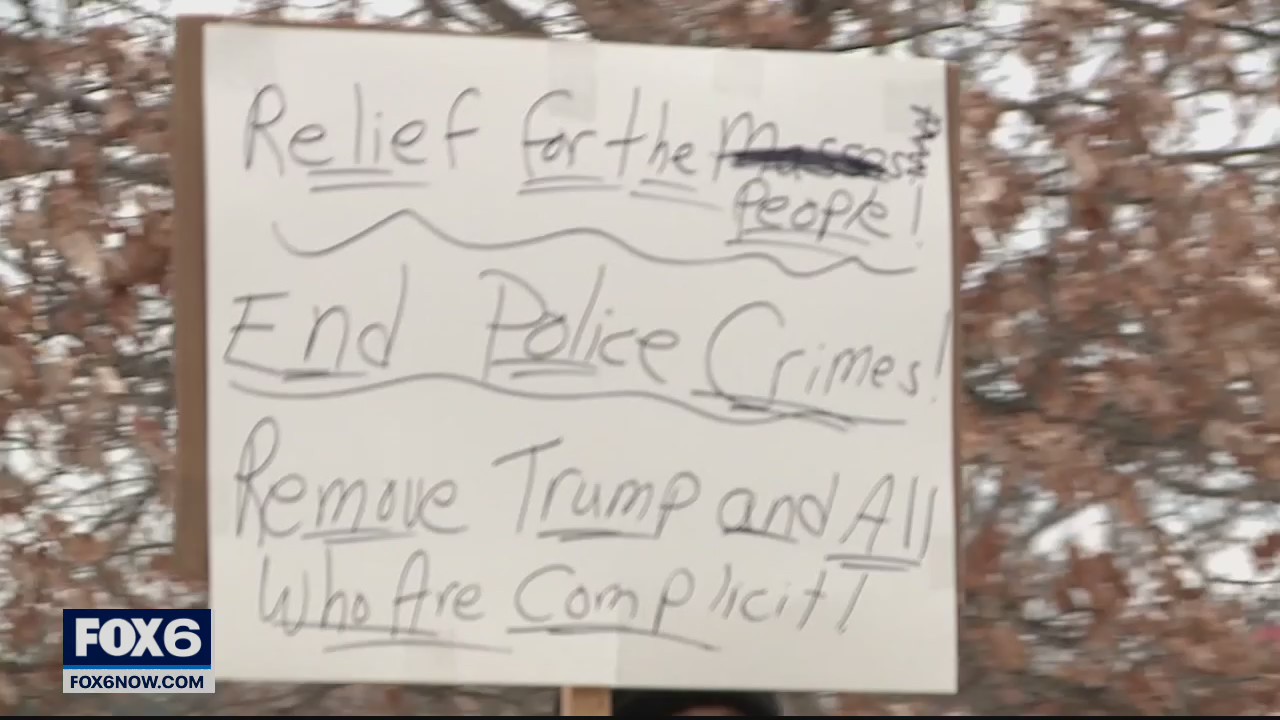 Relief for the Masses
People!
End Police Crimes!
Remove Trump and All
Who Are Complicit!
FOX6
FOX6NOW.COM